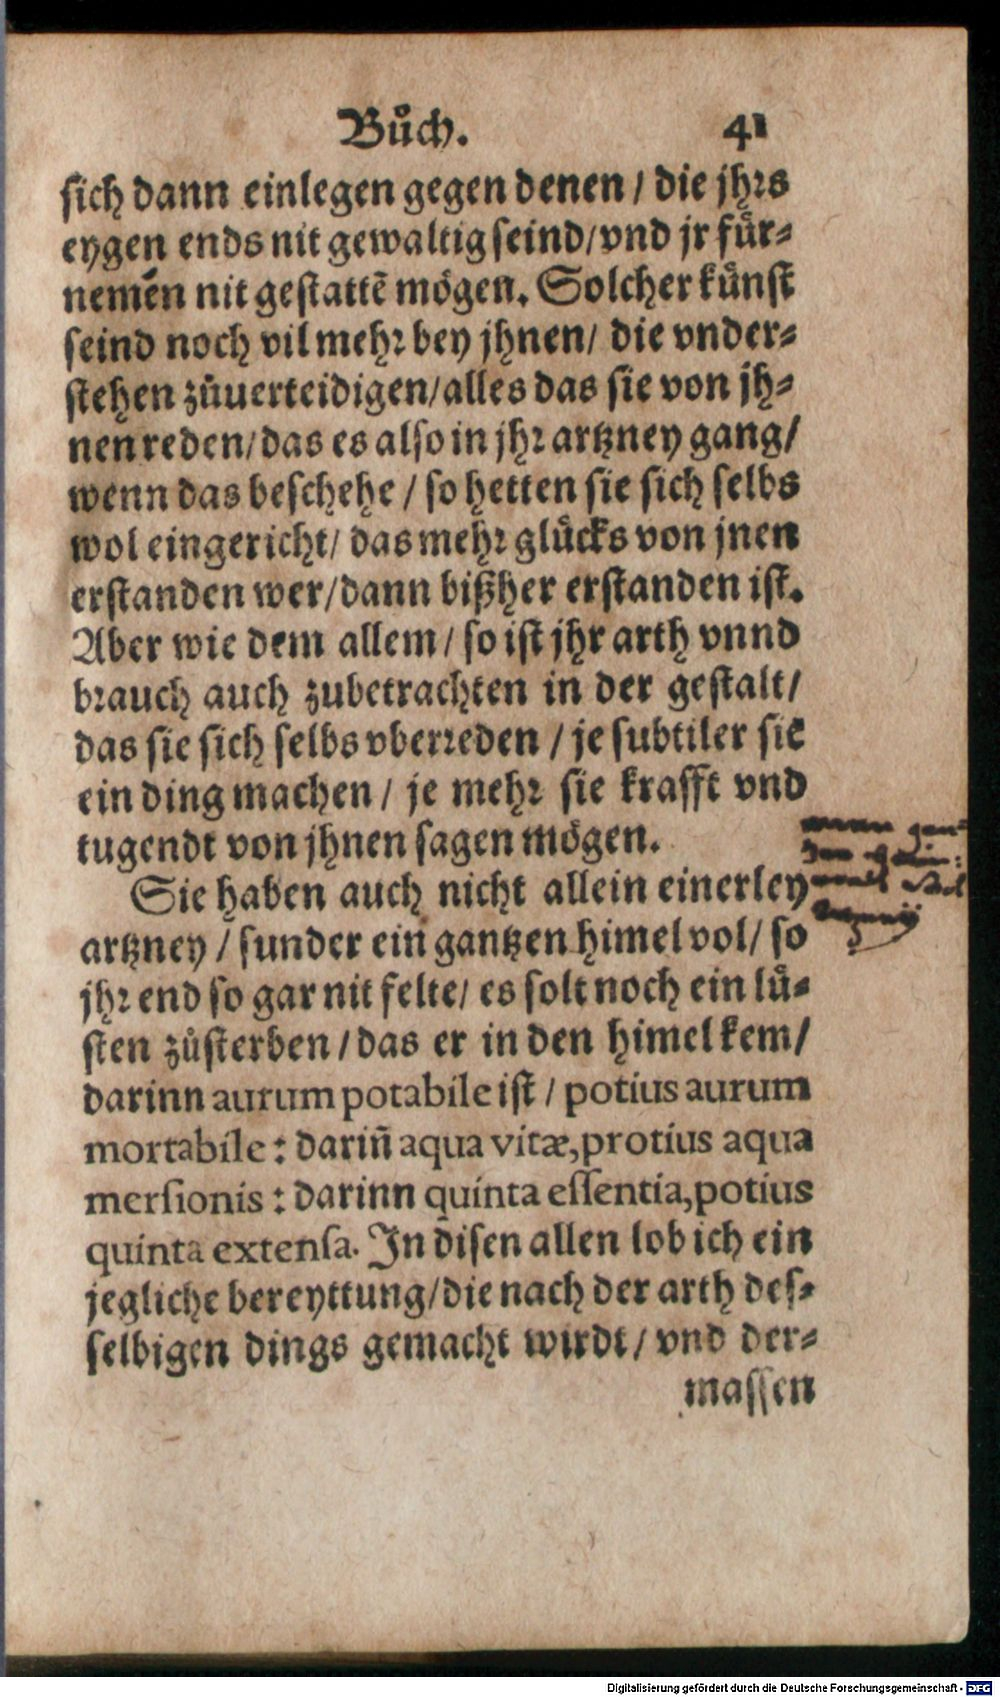 Bůch. 41
sich dann einlegen gegen denen / die jhrs
eygen ends nit gewaltig seind / vnd jr für-
nemēn nit gestattē mögen. Solcher künst
seind noch vil mehr bey jhnen / die vnder-
stehen zůuerteidigen / alles das sie von jh-
nen reden / das es also in jhr artzney gang /
wenn das beschehe / so hetten sie sich selbs
wol eingericht / das mehr glücks von jnen
erstanden wer / dann bißher erstanden ist.
Aber wie dem allem / so ist jhr arth vnnd
brauch auch zubetrachten in der gestalt /
das sie sich selbs vberreden / je subtiler sie
ein ding machen / je mehr sie krafft vnd
tugendt von jhnen sagen mögen.
Sie haben auch nicht allein einerley
artzney / sunder ein gantzen himel vol / so
jhr end so gar nit felte / es solt noch ein lü-
sten zůsterben / das er in den himel kem /
darinn aurum potabile ist / potius aurum
mortabile : dariñ aqua vitæ, protius aqua
mersionis : darinn quinta essentia, potius
quinta extensa. In disen allen lob ich ein
jegliche bereyttung / die nach der arth des-
selbigen dings gemacht wirdt / vnd der-
massen
Digitalisierung gefördert durch die Deutsche Forschungsgemeinschaft - DFG